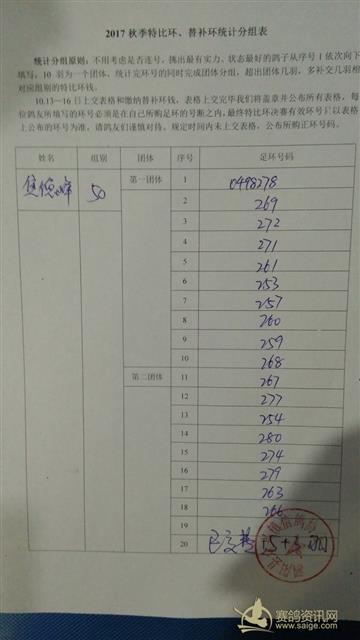 2017 秋季特比环、替补环统计分组表
统计分组原则：不用考虑是否连号，挑出最有实力、状态最好的鸽子从序号 1 依次向下
填写，10 羽为一个团体，统计完环号的同时完成团体分组，超出团体几羽，多补交几羽相
对应组别的特比环钱。
10.13—16 日上交表格和缴纳替补环钱，表格上交完毕我们将盖章并公布所有表格，每
位鸽友所填写的环号必须是在自己所购足环的号断之内，最终特比环决赛有效环号只以表格
上公布的环号为准，请鸽友们谨慎对待。规定时间内未上交表格，公布所购正环号码。
姓名 组别 团体 序号 足环号码
50 第一团体 1 0498278
2 269
3 272
4 271
5 261
6 253
7 257
8 260
9 259
10 268
第二团体 11 267
12 277
13 254
14 280
15 274
16 279
17 263
18 266
19
20 已交
赛鸽资讯网
www.saige.com